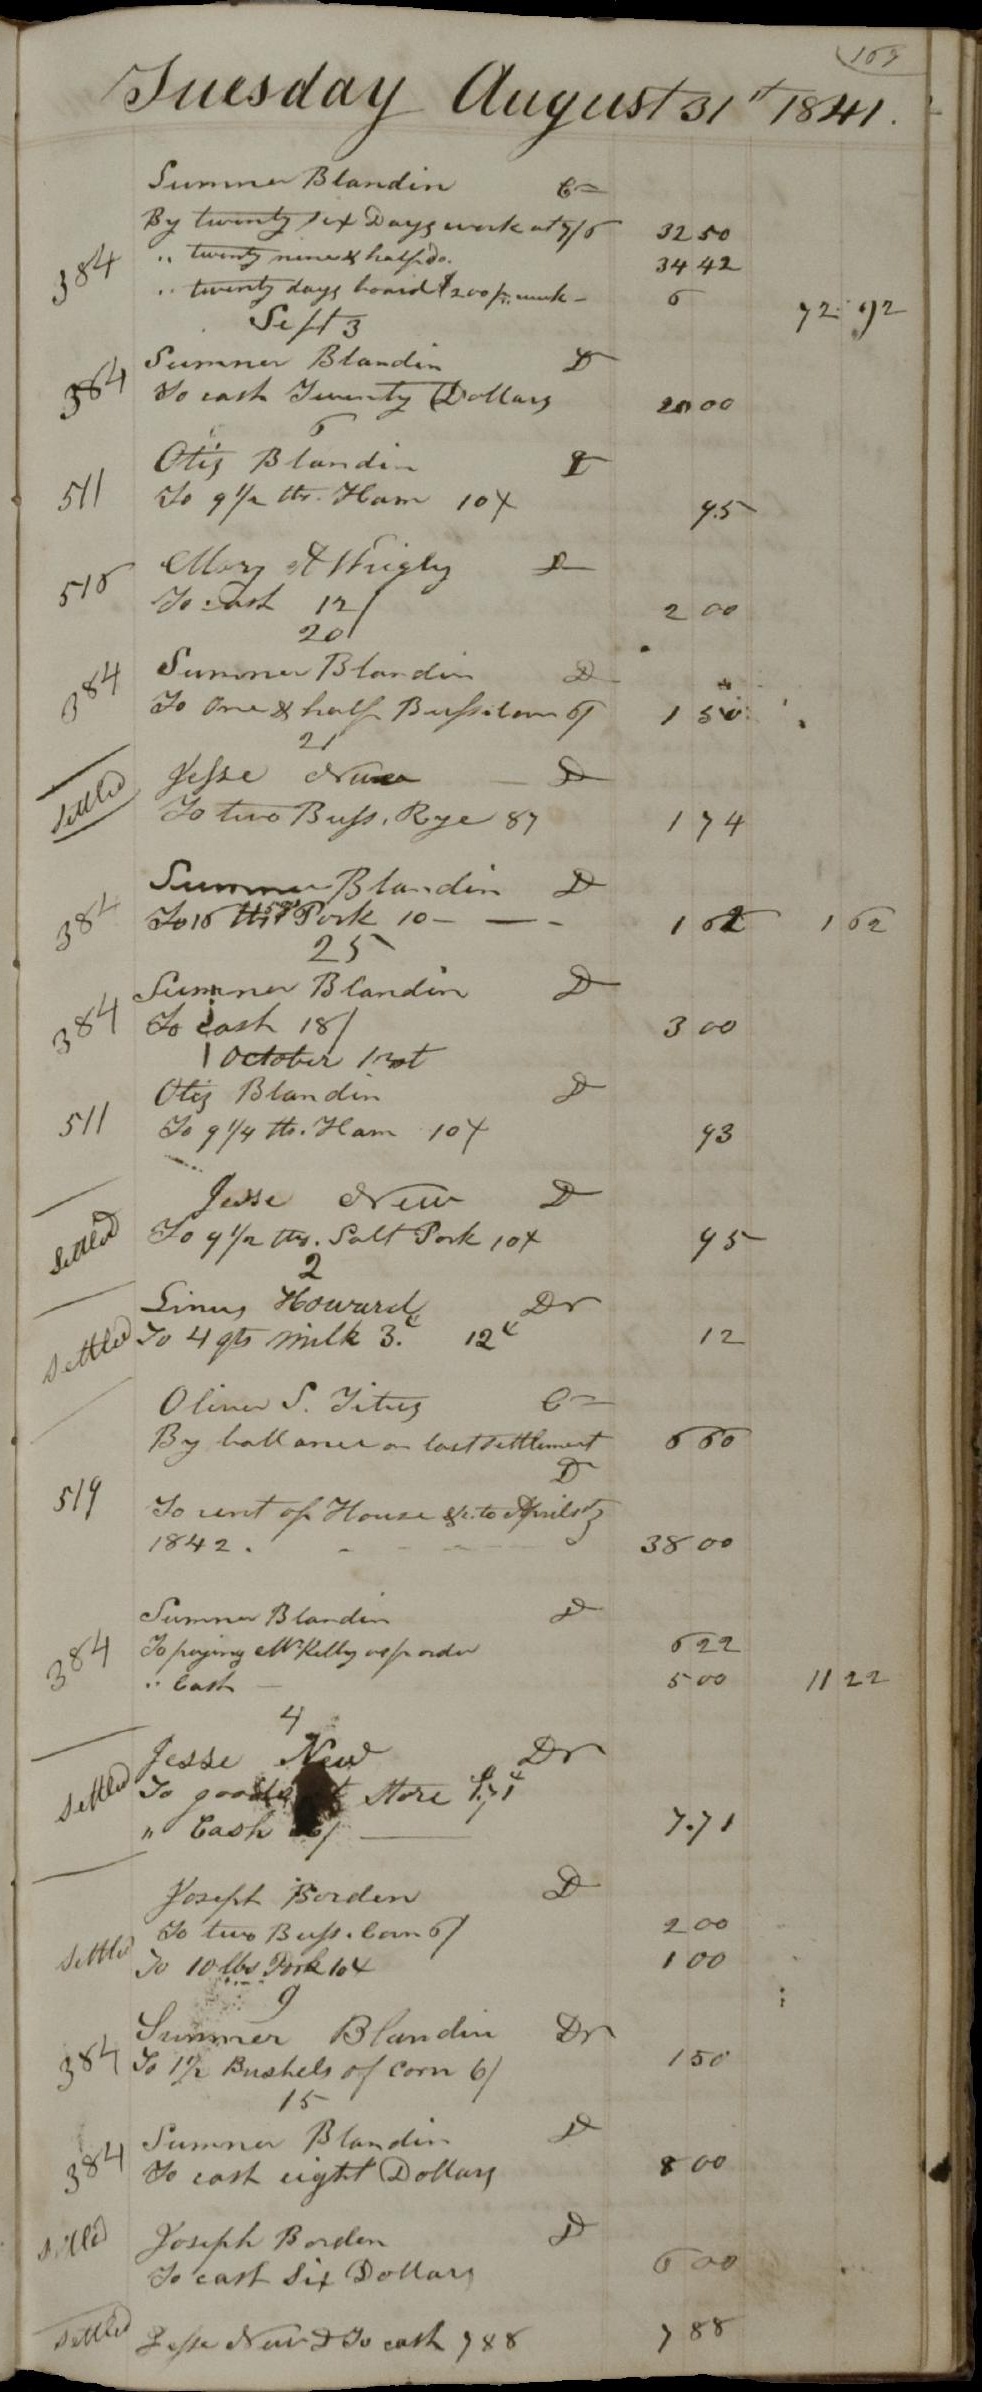 169
Tuesday August 31st 1841.
Sumner Blandin Cr
By twenty six Days work at 7/6 32 50
384 " twenty nine & half Do. 34 42
" twenty days board $2 00 pr. week - 6 72 92
Sept 3
384 Sumner Blandin D
To cash Twenty Dollars 20 00
6
Otis Blandin D
511 To 9 1/2 lbs. Ham 10 ¢ 95
Mary A D
516 To Cash 12/ 2 00
20
384 Sumner Blandin D
To One & half Buss. Corn 6/ 1 50
21
Settled Jesse New D
To two Buss. Rye 87 1 74
Sumner Blandin D
384 To 16 lbs Pork 10 - 1 62 1 62
25
Sumner Blandin D
384 To Cash 18/ 3 00
October 1st
Otis Blandin D
511 To 9 1/4 lbs. Ham 10 ¢ 93
Jesse New D
Settled To 9 1/2 lbs. Salt Pork 10 ¢ 95
2
Linus Howard Dr
Settled To 4 qts milk 3.¢ 12¢ 12
Oliver S. Titus Cr
By ballance on last settlement 6 60
D
519 To rent of House &c. to April 1st
1842. 38 00
Sumner Blandin D
384 To paying Mr Kelly as pr order 6 22
" Cash - 5 00 11 22
4
Jesse New Dr
Settled To goods at Store 1.71
" Cash 36/ 7.71
Joseph Borden D
To two Buss. Corn 6/ 2 00
Settled To 10 lbs Pork 10 ¢ 1 00
9
Sumner Blandin Dr
384 To 1 1/2 Bushels of Corn 6/ 1 50
15
Sumner Blandin D
384 To cash eight Dollars 8 00
Settled Joseph Borden D
To cash Six Dollars 6 00
Settled Jesse New D To cash 7 88 7 88